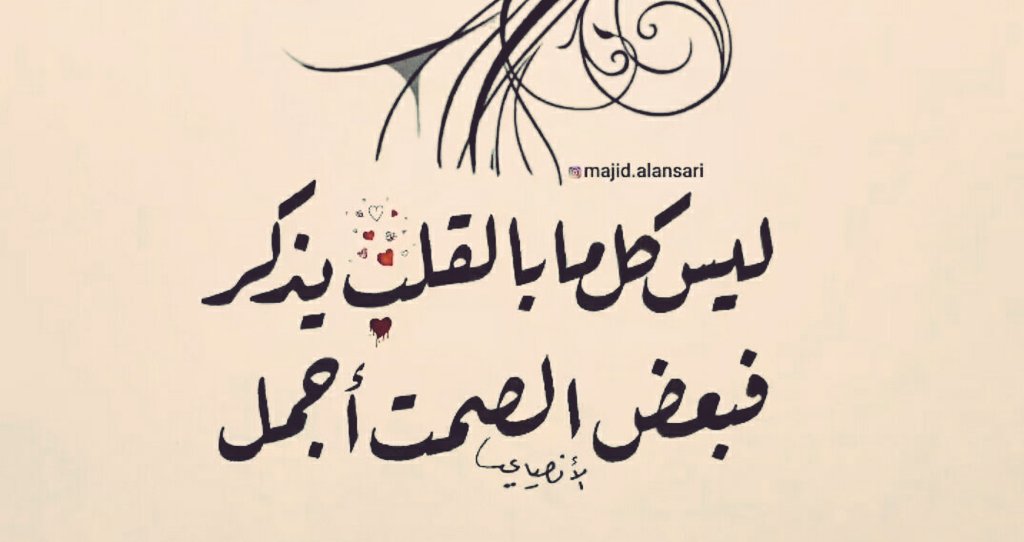 majid.alansari
ليس كل ما بالقلب يذكر
فبعض الصمت أجمل
الأنصاري